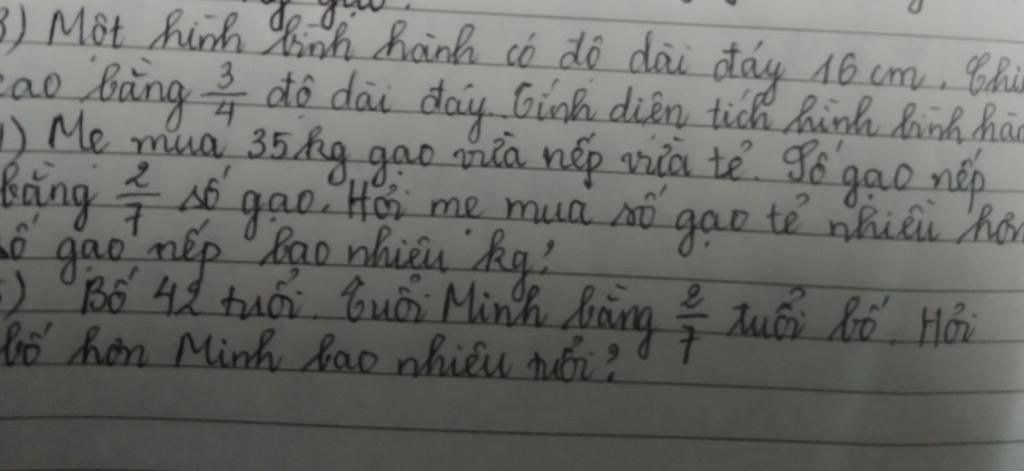 3) Một hình bình hành có độ dài đáy 16 cm. Chi
cao bằng 3/4 độ dài đáy. Tính diện tích hình bình hàn
) Mẹ mua 35 kg gạo vừa nếp vừa tẻ. Số gạo nếp
bằng 2/7 số gạo. Hỏi mẹ mua số gạo tẻ nhiều hơn
số gạo nếp bao nhiêu kg?
) Bố 42 tuổi. Tuổi Minh bằng 2/7 tuổi bố. Hỏi
bố hơn Minh bao nhiêu tuổi?